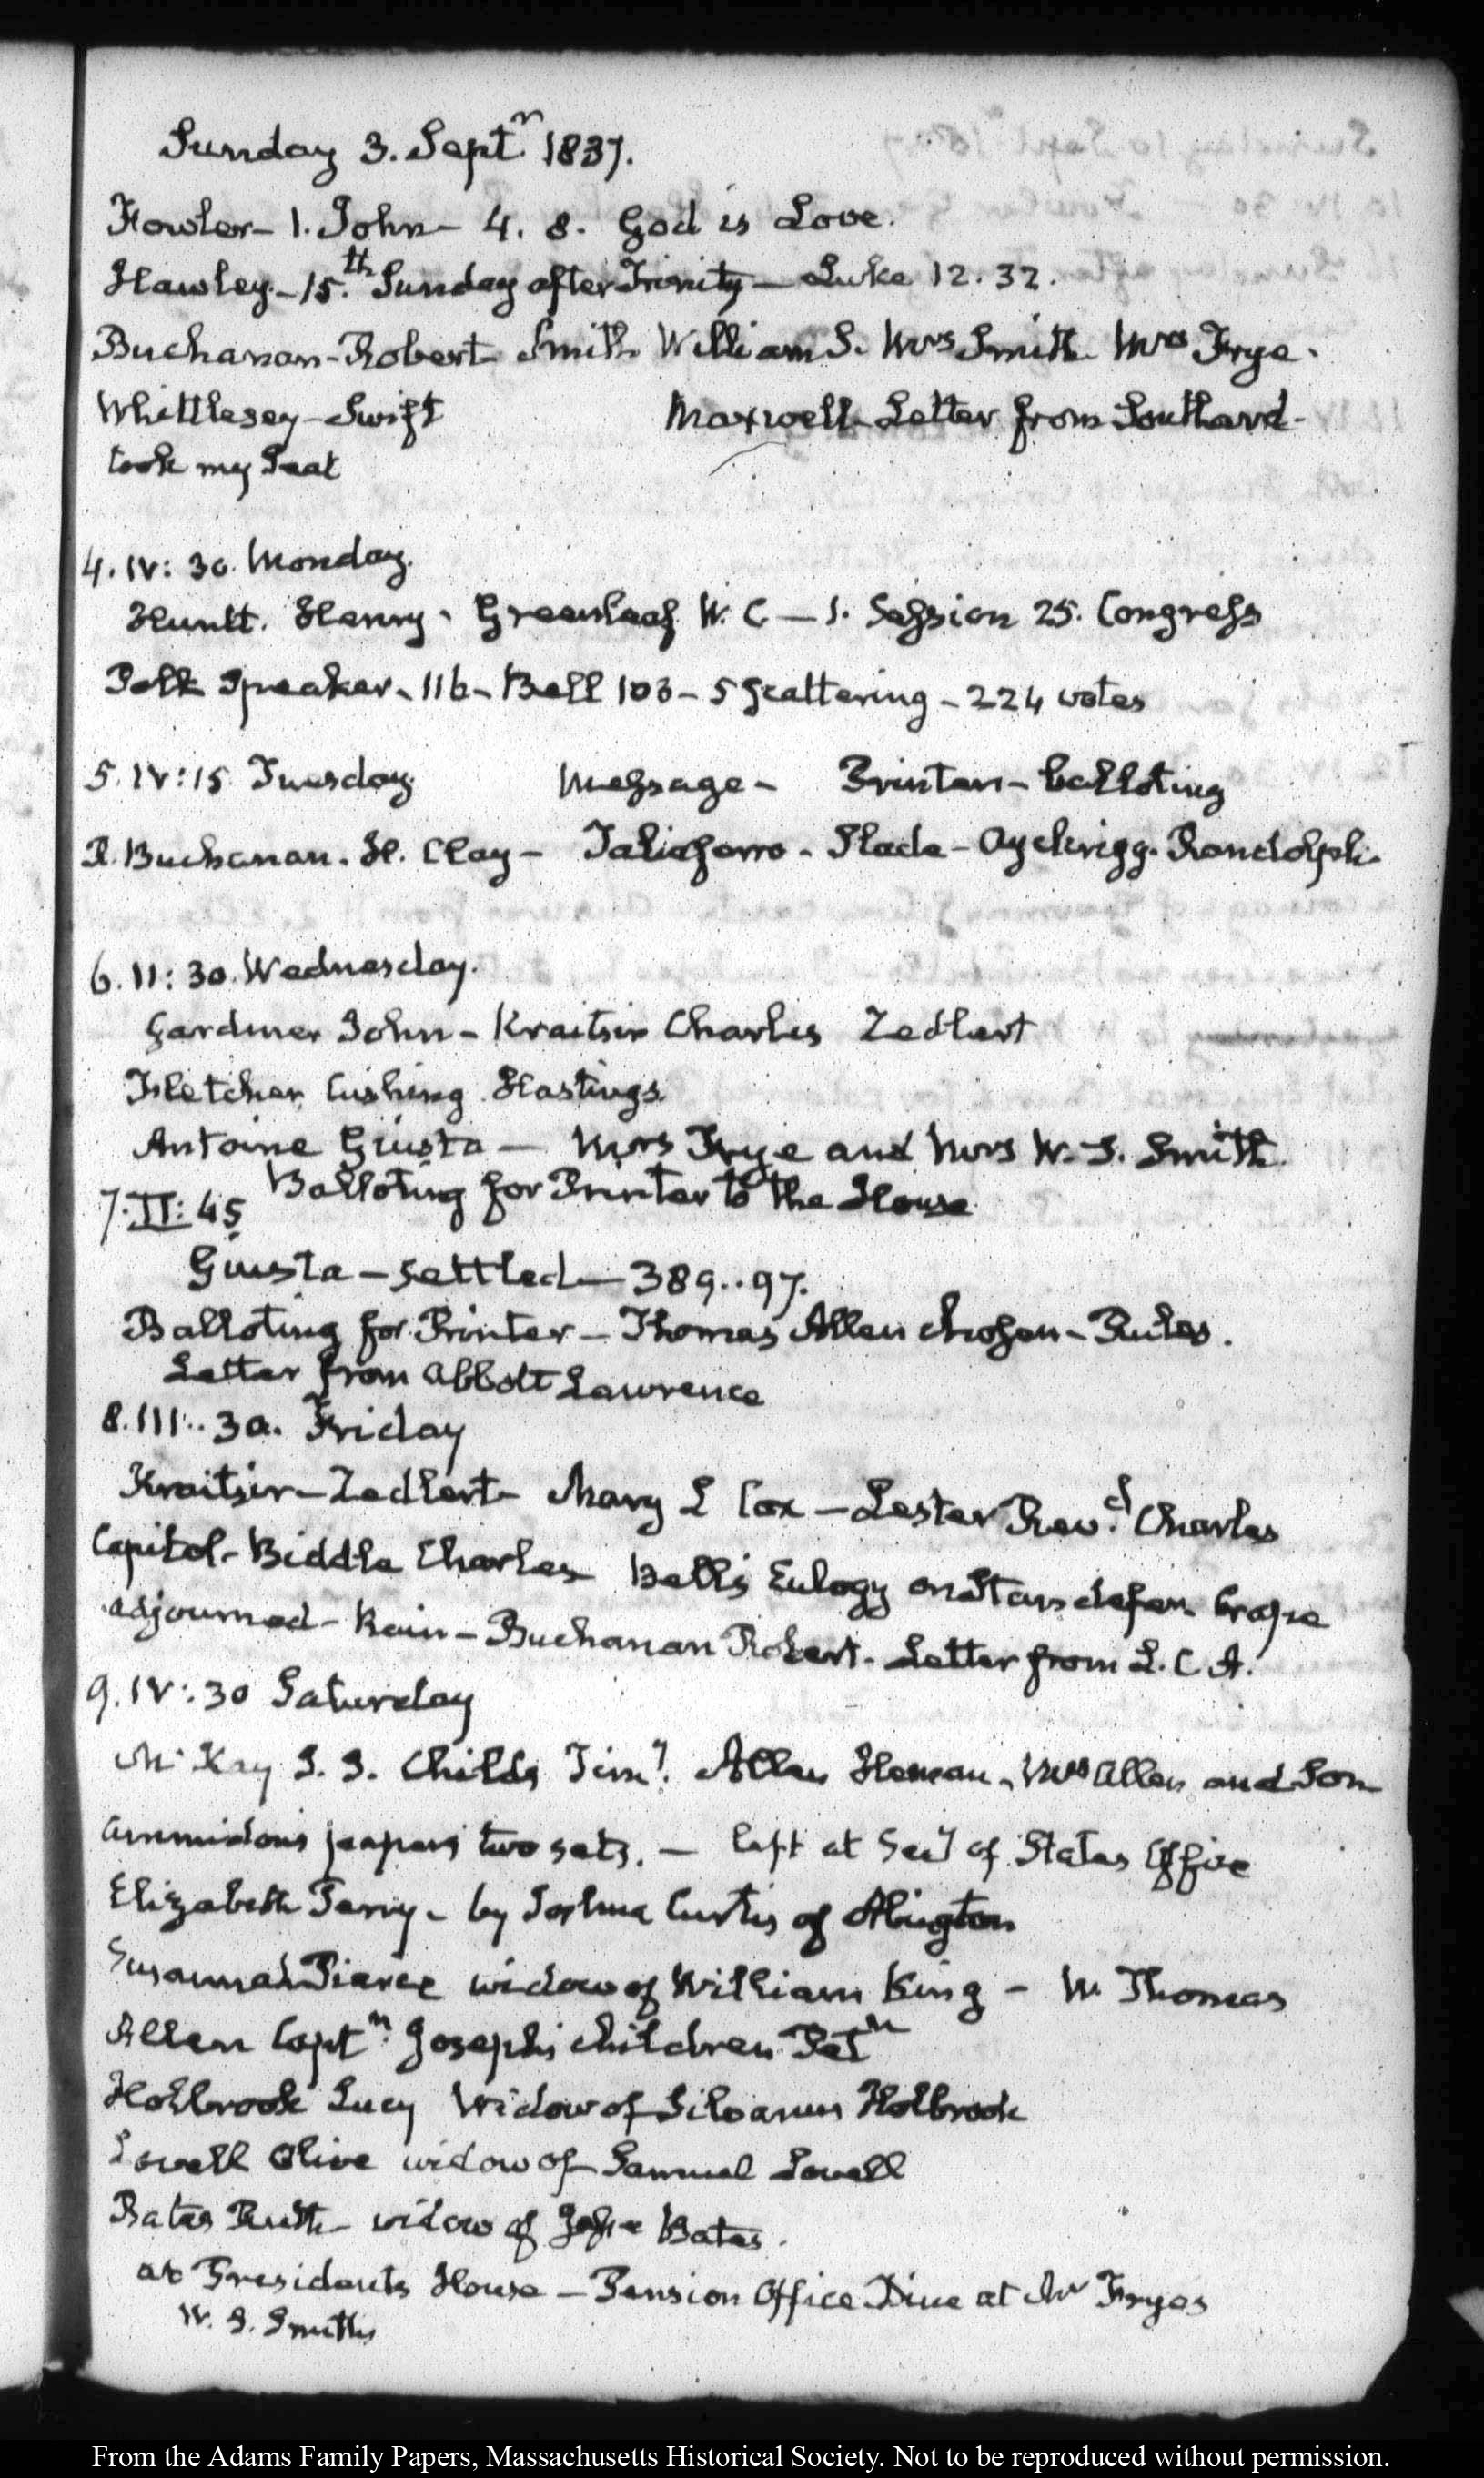 Sunday 3. Septr. 1837.
Fowler - 1. John - 4. 8. God is Love.
Hawley - 15th. Sunday after Trinity - Luke 12. 32.
Buchanan - Robert Smith William S. Mrs Smith Mrs Frye.
Whittlesey - Swift Maxwell Letter from Southard -
took my Seat
4. IV: 30. Monday.
Huntt. Henry - Greenleaf W. C - 1. Session 25. Congress
Polk Speaker - 116 - Bell 103 - 5 Scattering - 224 votes
5. IV: 15 Tuesday. Message - Printer - balloting
R. Buchanan - H. Clay - Taliaferro - Slade - Aycrigg - Randolph.
6. II: 30. Wednesday.
Gardiner John - Kraitsir Charles Zedlert
Fletcher Cushing Hastings
Antoine Giusta - Mrs Frye and Mrs W. S. Smith.
Balloting for Printer to the House
7. II: 45
Giusta - settled - 389..97.
Balloting for Printer - Thomas Allen chosen - Rules.
Letter from Abbott Lawrence
8. III.. 30. Friday
Kraitsir - Zedlert - Mary L Cox - Lester Revd. Charles
Capitol - Biddle Charles Bell's Eulogy on Standefer. Crape
adjourned - Rain - Buchanan Robert - Letter from L. C. A.
9. IV: 30 Saturday
McKay J. J. Childs Timy. Allen Heman - Mrs Allen and Son
Ammidon's papers two sets. - left at Secy of States Office
Elizabeth Terry - by Joshua Curtis of Abington
Susannah Pierce widow of William King - W Thomas
Allen Captn. Joseph's children Petn
Holbrook Lucy Widow of Silvanus Holbrook
Lovell Olive widow of Samuel Lovell
Bates Ruth - widow of Jesse Bates.
at Presidents House - Pension Office Dine at Mr Fryes
W. S. Smith's
From the Adams Family Papers, Massachusetts Historical Society. Not to be reproduced without permission.